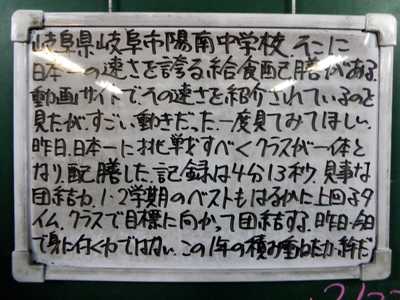 岐阜県岐阜市陽南中学校.そこに
日本一の速さを誇る給食配膳がある.
動画サイトで.その速さを紹介されているのを
見たが.すごい動きだった.一度見てみてほしい.
昨日.日本一に挑戦すべくクラスが一体と
なり配膳した.記録は4分13秒.見事な
団結力.1・2学期のベストをはるかに上回るタ
イム.クラスで目標に向かって団結する.昨日・今日
で身に付く力ではない.この1年の積み重ねた力.絆だ